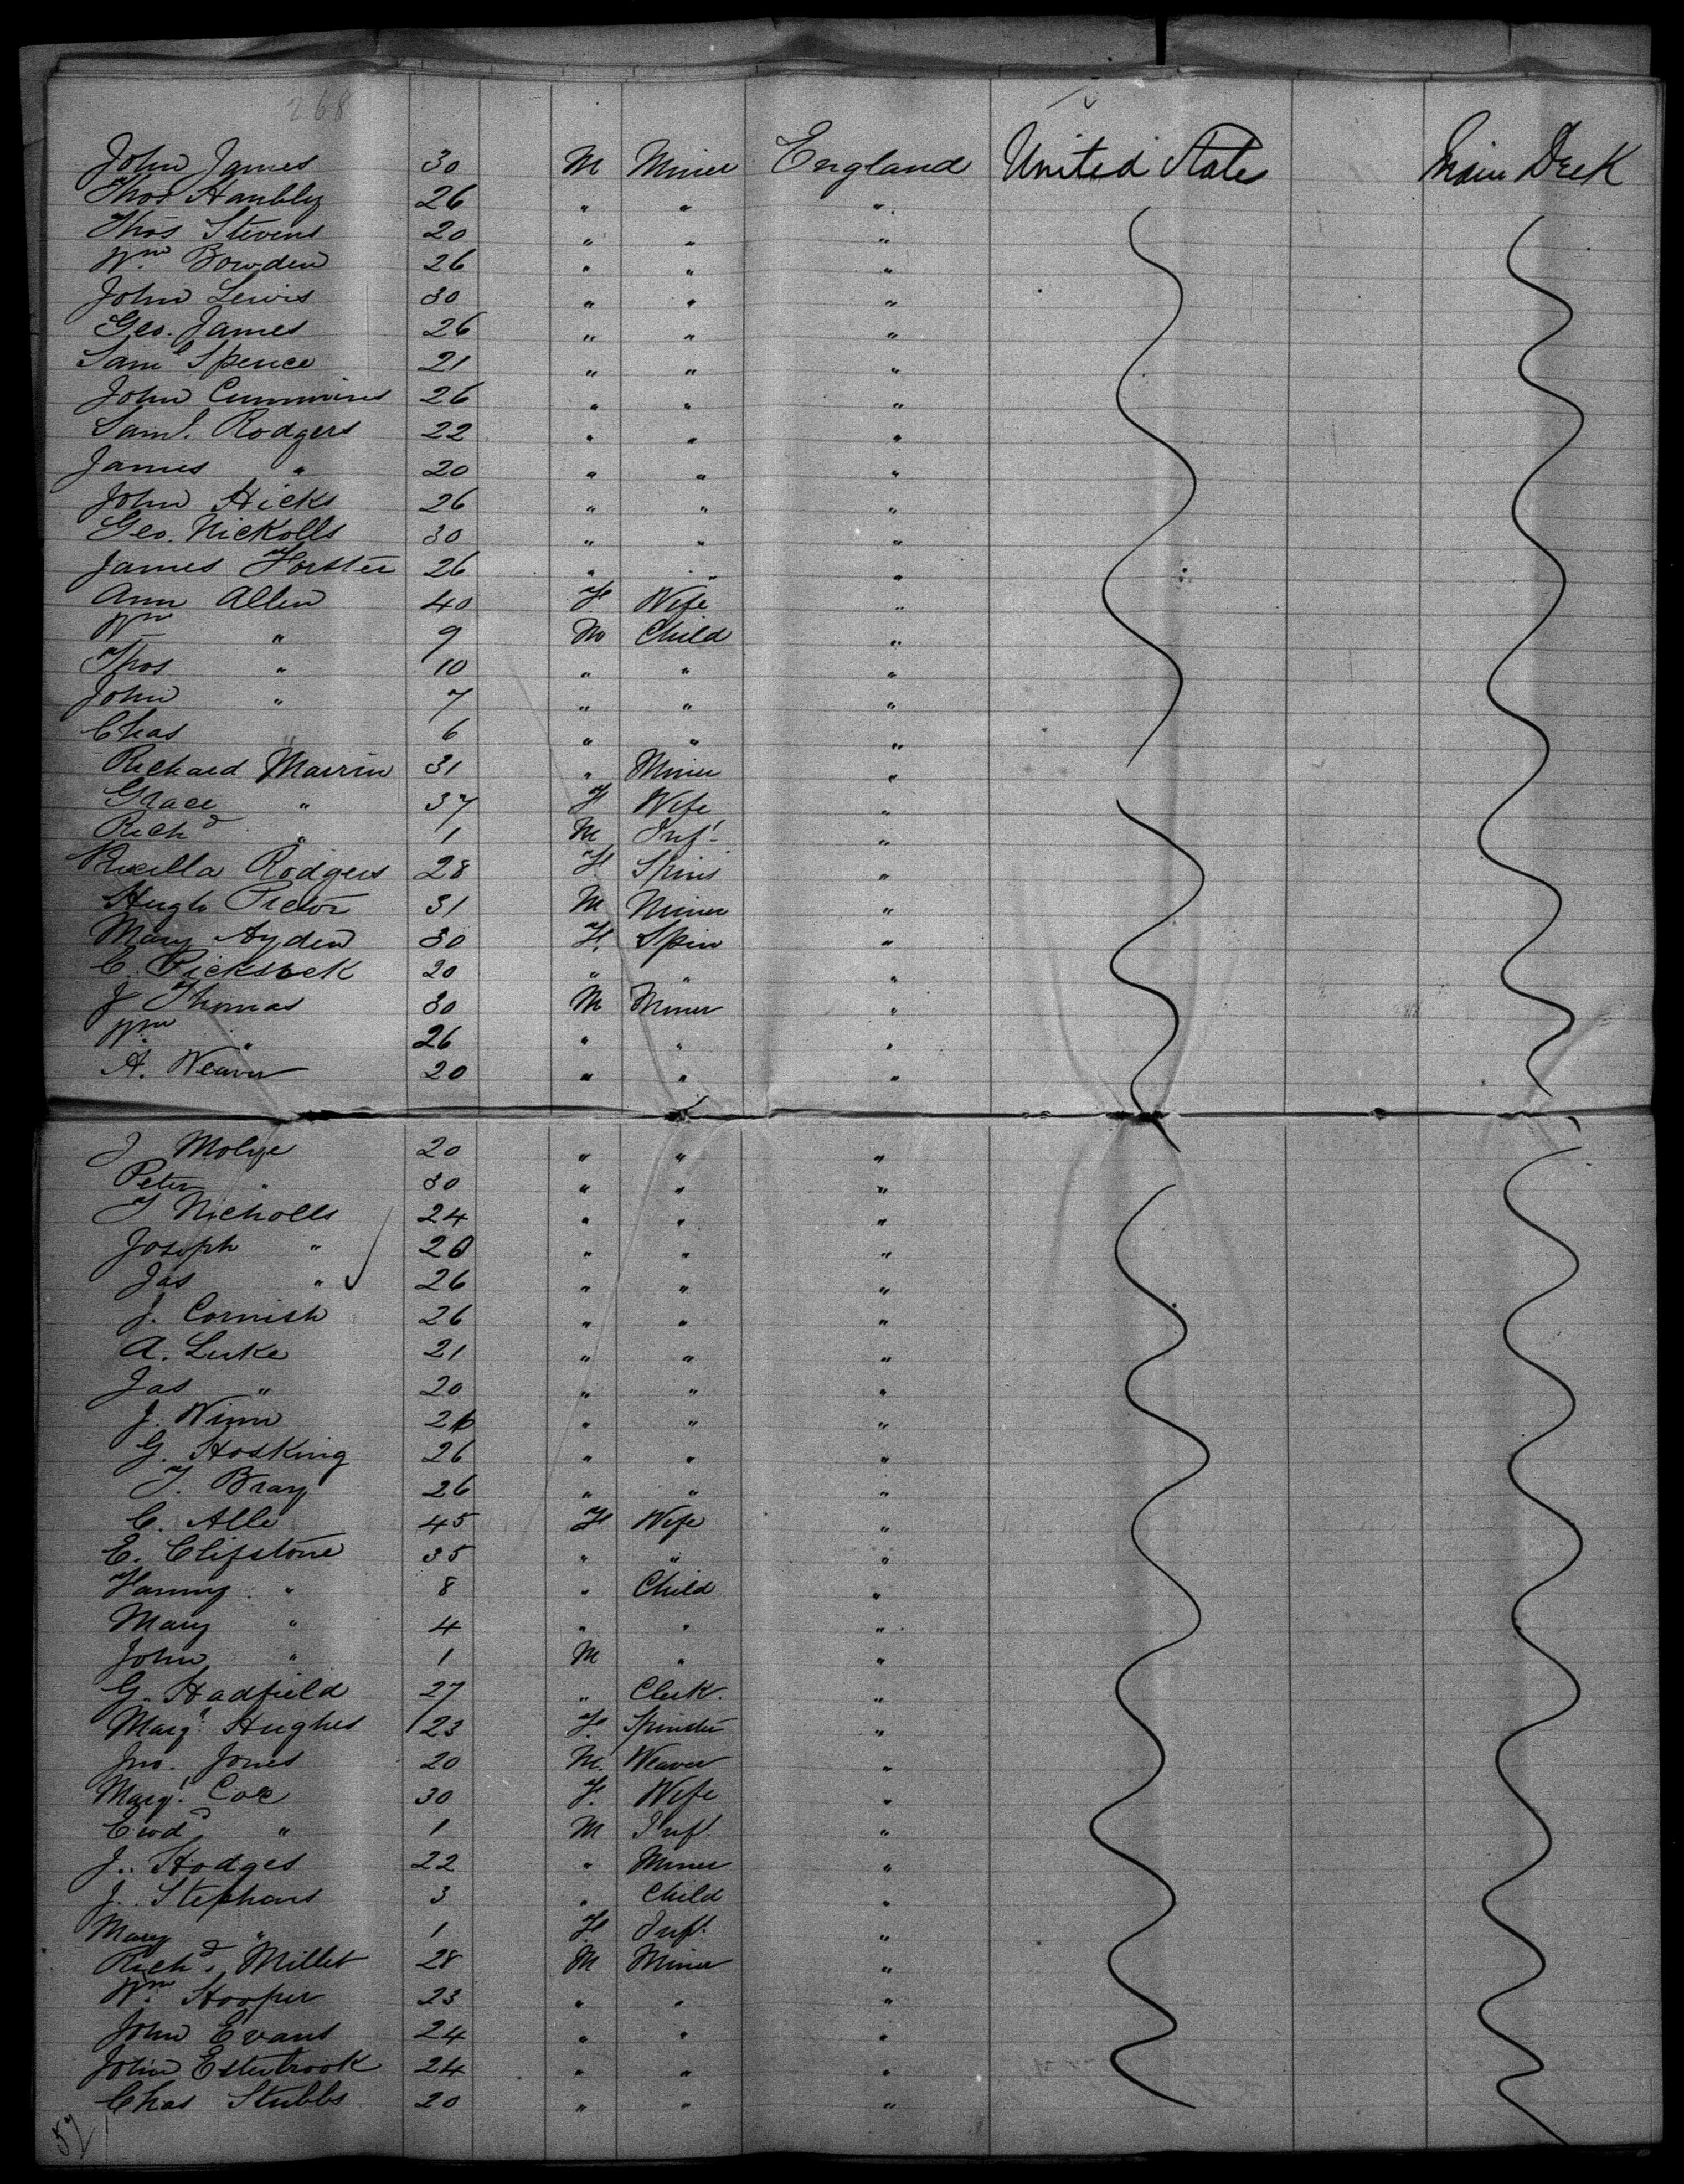 268
John James 30 M Miner England United States Main Deck
Thos Hambly 26 " " "
Thos Stevens 20 " " "
Wm Bowden 26 " " "
John Lewis 30 " " "
Geo. James 26 " " "
Saml Spence 21 " " "
John Cummins 26 " " "
Saml. Rodgers 22 " " "
James " 20 " " "
John Hicks 26 " " "
Geo. Nickolls 30 " " "
James Forster 26 " " "
Ann Allen 40 F Wife "
Wm " 9 M Child "
Thos " 10 " " "
John " 7 " " "
Chas " 6 " " "
Richard Marrin 31 " Miner "
Grace " 37 F Wife "
Richd " 1 M Inft "
Rodgers 28 F Spins "
Hugh 31 M Miner "
Mary Ayden 30 F. Spin "
C. 20 " " "
J Thomas 30 M Miner "
Wm " 26 " " "
A. Weaver 20 " " "
J Molye 20 " " "
Peter " 30 " " "
T Nicholls 24 " " "
Joseph " 20 " " "
Jas " 26 " " "
J. Cornish 26 " " "
A. Luke 21 " " "
Jas " 20 " " "
J. Winn 26 " " "
G. Hosking 26 " " "
T. Bray 26 " " "
C. Alle 45 F Wife "
E. Clifstone 35 " " "
Fanny " 8 " Child "
Mary " 4 " " "
John " 1 M " "
G. Hadfield 27 " Clerk. "
Margt Hughes 23 F. Spinster "
Jno. Jones 20 M. Weaver "
Margt. Cox 30 F. Wife "
Ewd " 1 M Inft. "
J. Hodges 22 " Miner "
J. Stephens 3 " Child "
Mary " 1 F. Inft. "
Richd. Millet 28 M Miner "
Wm. Hooper 23 " " "
John Evans 24 " " "
John Esterbrook 24 " " "
Chas Stubbs 20 " " "
57